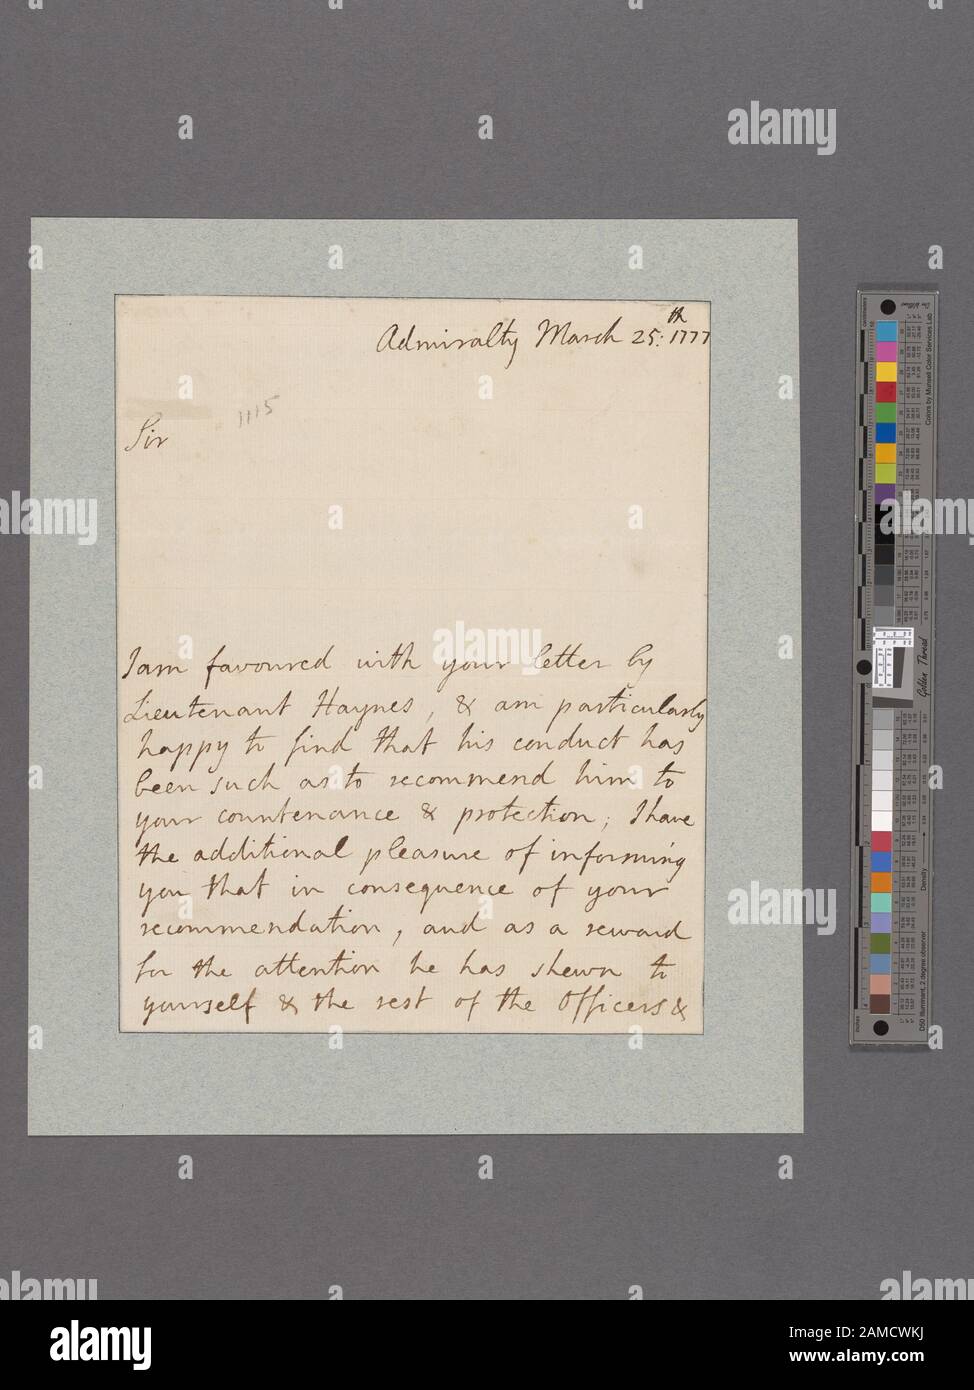 Admiralty March 25:th 1777
1115
Sir
I am favoured with your letter by
Lieutenant Haynes, & am particularly
happy to find that his conduct has
been such as to recommend him to
your countenance & protection; I have
the additional pleasure of informing
you that in consequence of your
recommendation, and as a reward
for the attention he has shewn to
yourself & the rest of the Officers &
Golden Thread
Colors by Munsell Color Services Lab
Density
D50 Illuminant, 2 degree observer
centimeters
inches
alamy
a
alamy
Image ID: 2AMCWKJ
www.alamy.com